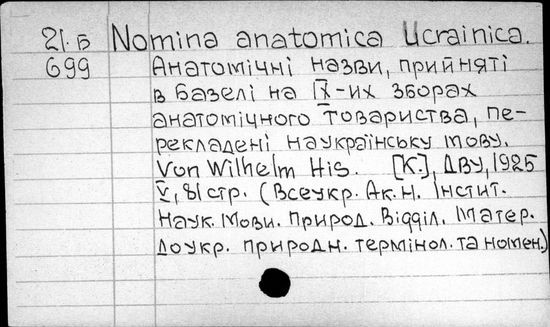 21.Б Nomina anatomica Ucrainica.
699 Анатомічні назви, прийняті
в Базелі на IX-их зборах
анатомічного товариства, пе-
рекладені наукраїнську мову.
Von Wilhelm His. [К.], ДВУ, 1925
V, 81 стр. (Всеукр. Ак. Н. Інстит.
Наук. Мови. Природ. Відділ. Матер.
до укр. природн. термінол. та номен.)